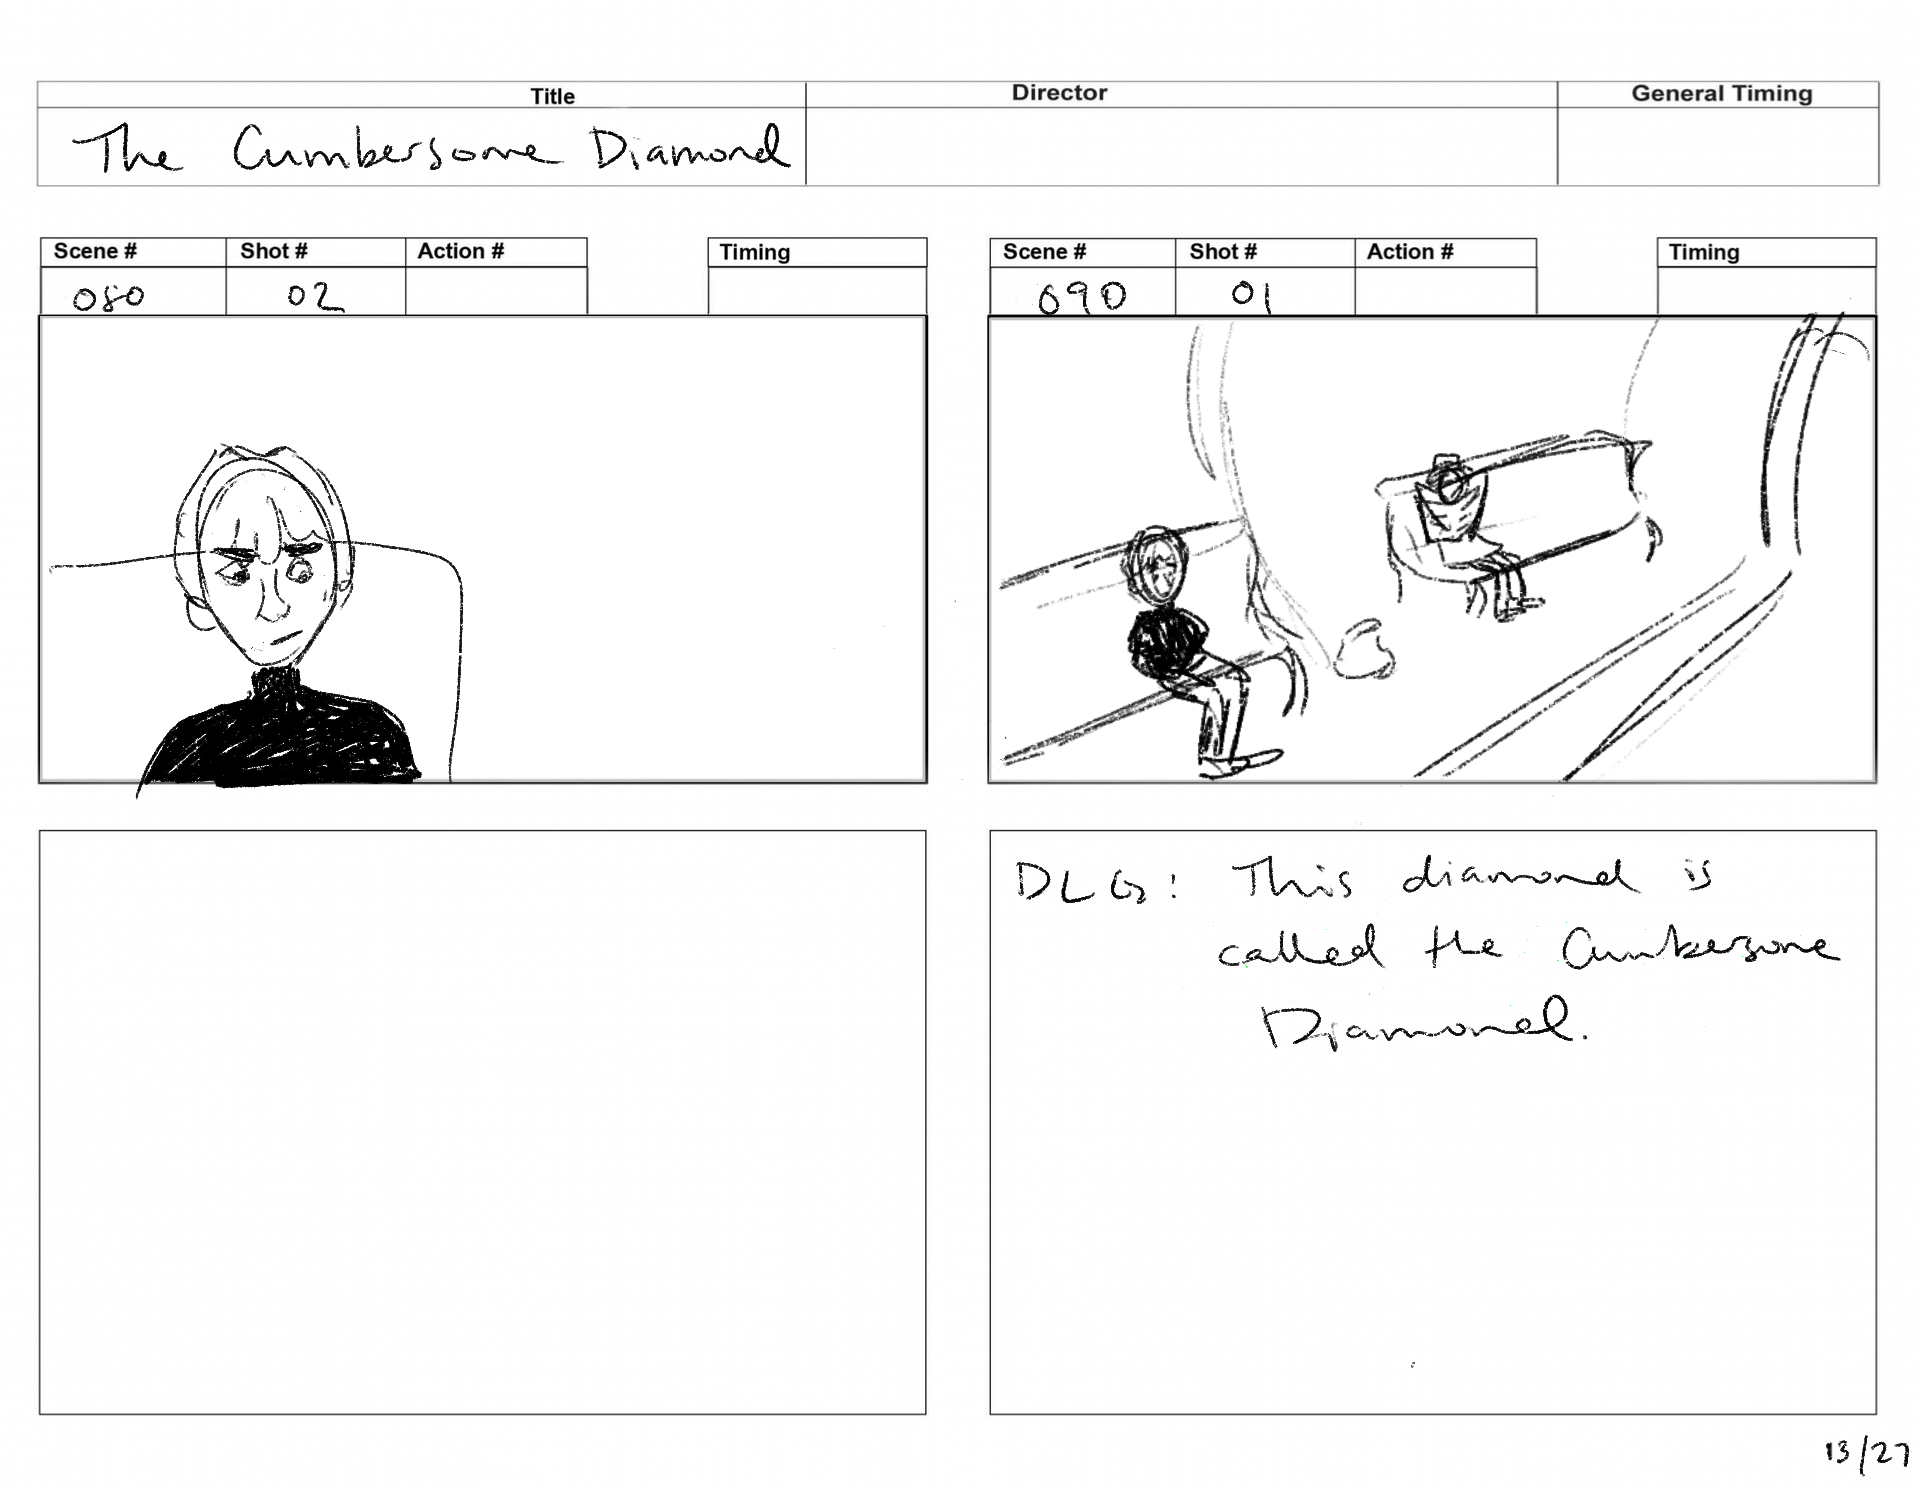 Title Director General Timing
The Cumbersome Diamond
Scene # Shot # Action # Timing
080 02
Scene # Shot # Action # Timing
090 01
DLG: This diamond is
called the Cumbersome
Diamond.
13/27